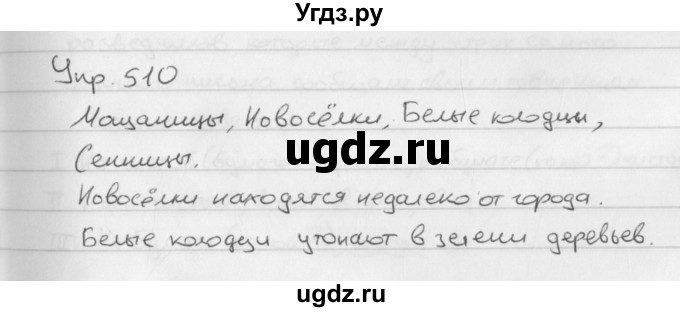 Угдз.ру
Упр. 510
Мощаницы, Новосёлки, Белые колодцы,
Сенницы.
ugdz.ru
Новосёлки находятся недалеко от города.
Белые колодци утопают в зелени деревьев.
ugdz.ru